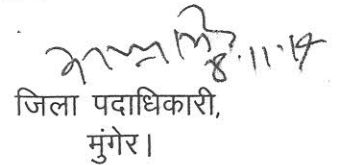 8.11.19
जिला पदाधिकारी,
मुंगेर।